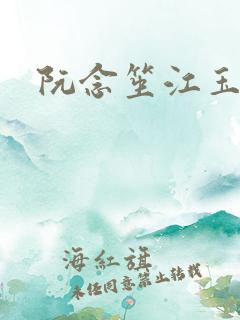 阮念笙江玉
海紅旗
未经同意禁止转载